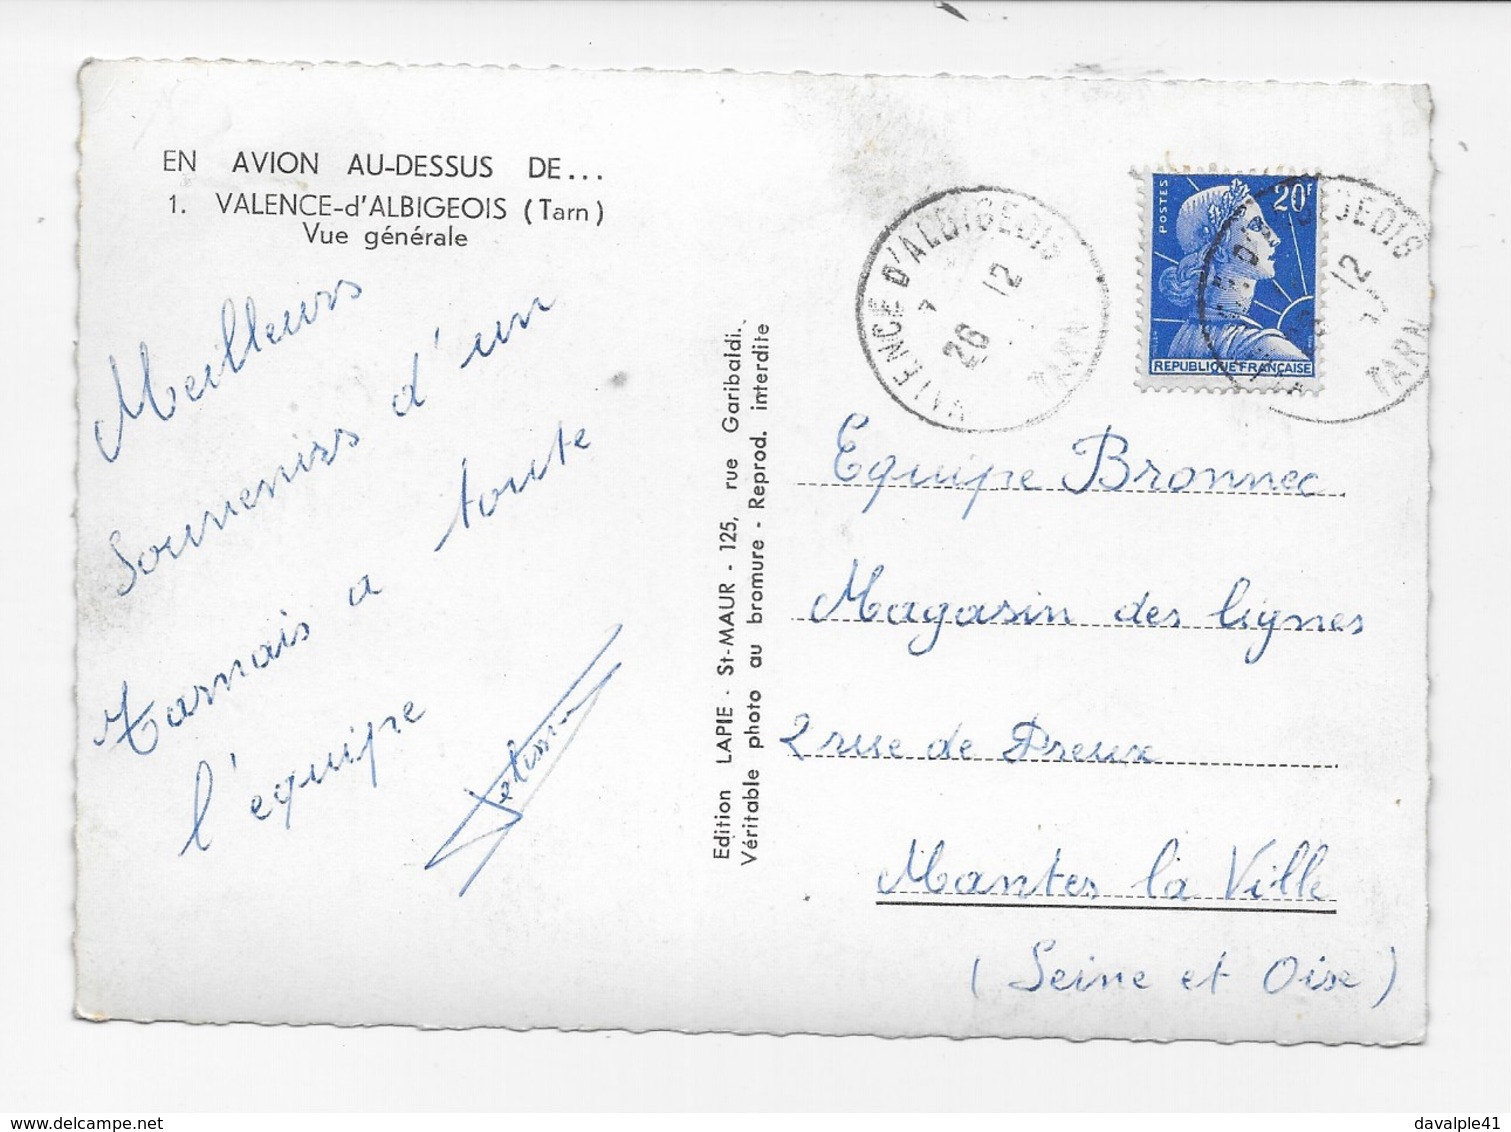 EN AVION AU-DESSUS DE...
1. VALENCE-d'ALBIGEOIS (Tarn)
Vue générale
Meilleurs
Souvenirs d'un
tarnais a toute
l'equipe
Edition LAPIE - St-MAUR - 125, rue Garibaldi.
Véritable photo au bromure - Reprod. interdite
VALENCE D'ALBIGEOIS
26 12
TARN
POSTES
20F
REPUBLIQUE FRANÇAISE
12
TARN
Equipe Bronnec
Magasin des lignes
2 rue de Dreux
Mantes la Ville
(Seine et Oise)
www.delcampe.net
davalple41